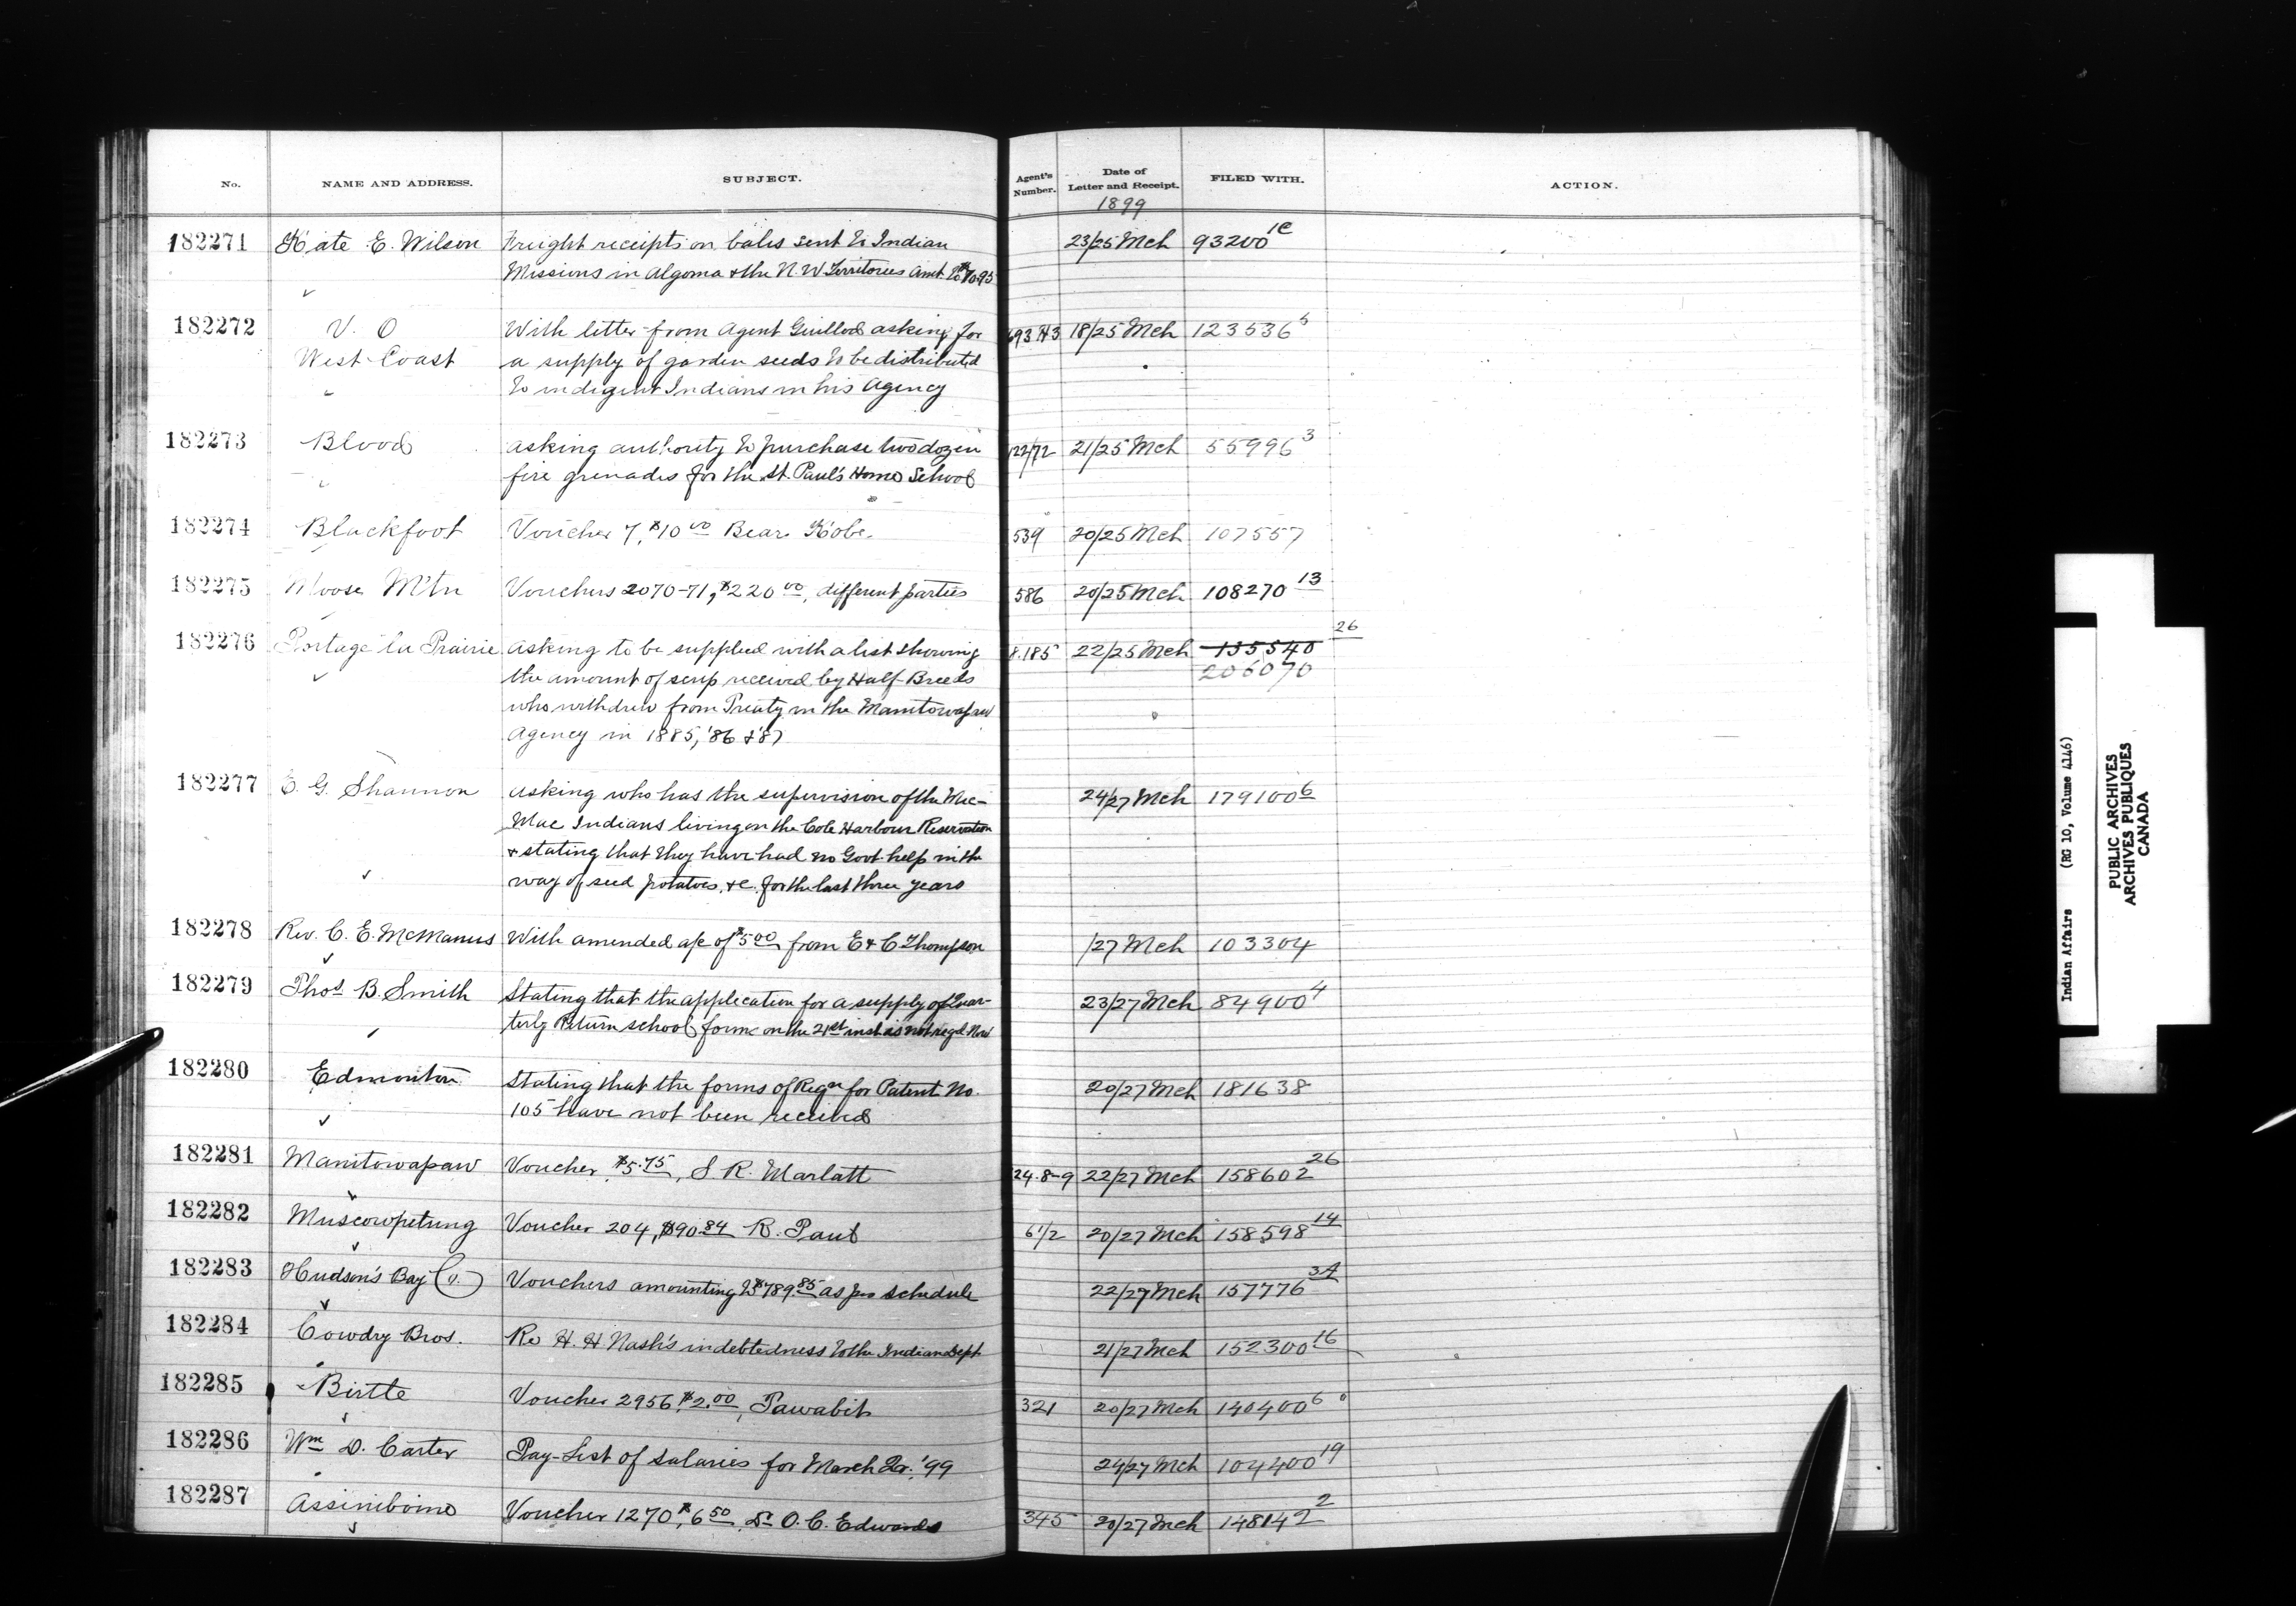 No. NAME AND ADDRESS. SUBJECT. Agent's Number. Date of Letter and Receipt. FILED WITH. ACTION.
1899
182271 Kate E. Wilson Freight receipts on bales sent to Indian 23/25 Mch 93200
Missions in Algoma & the N.W Territories amt. to
182272 V. O With letter from Agent Guillod asking for 18/25 Mch 123536 5
West Coast a supply of garden seeds to be distributed
to indigent Indians in his Agency
182273 Blood asking authority to purchase two dozen 21/25 Mch 55996 3
fire grenades for the St. Paul's Home School
182274 Blackfoot Voucher 7, $10 00 Bear Robe. 539 20/25 Mch 107557
182275 Moose Mtn Vouchers 2070-71, $220 00, different parties 586 20/25 Mch 108270 13
182276 Portage la Prairie asking to be supplied with a list showing 8.185 22/25 Mch 135540 26
the amount of scrip received by Half-Breeds 206070
who withdrew from Treaty in the Manitowapaw
Agency in 1885, '86 & '87
182277 E. G. Shannon asking who has the supervision of the Mic- 24/27 Mch 179100 6
Mac Indians living on the Cole Harbour Reservation
& stating that they have had no Govt. help in the
way of seed potatoes, &c. for the last three years
182278 Rev. C. E. McManus With amended a/c of $5 00 from E & C Thompson /27 Mch 103304
182279 Thos. B. Smith Stating that the application for a supply of Quar- 23/27 Mch 84900 4
terly Return school forms on the 21st inst is not reqd. Now
182280 Edmonton Stating that the forms of Reqn for Patent No. 20/27 Mch 181638
105 have not been received
182281 Manitowapaw Voucher, $5.75, S. R. Marlatt 24.8-9 22/27 Mch 158602 26
182282 Muscowpetung Voucher 204, $90.84 R. Paul 61/2 20/27 Mch 158598 14
182283 Hudson's Bay Co. Vouchers amounting to $789.85 as per schedule 22/27 Mch 157776 34
182284 Cowdry Bros. Re H. H. Nash's indebtedness to the Indian Dept 21/27 Mch 152300 16
182285 Birtle Voucher 2956, $2.00, Pawabit 321 20/27 Mch 140400 6
182286 Wm D. Carter Pay-List of salaries for March Qr. '99 24/27 Mch 104400 19
182287 Assiniboine Voucher 1270, $6 50, Dr O. C. Edwards 345 20/27 Mch 148142 2
Indian Affairs (RG 10, Volume 4146)
PUBLIC ARCHIVES
ARCHIVES PUBLIQUES
CANADA